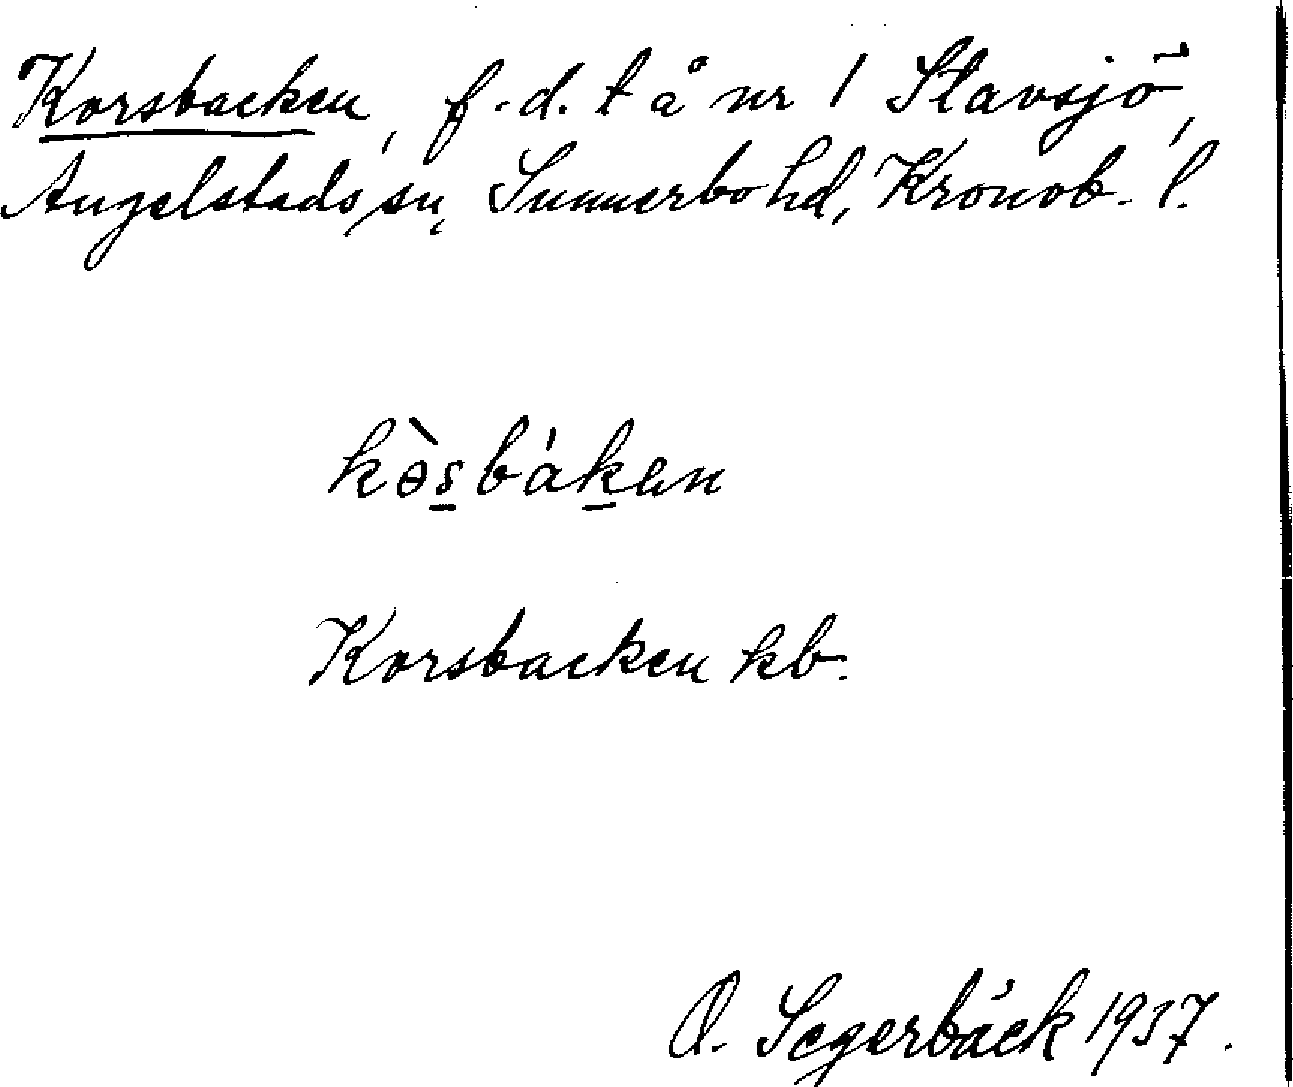 Korsbacken, f.d. t å nr 1 Stavsjö,
Angelstads sn, Sunnerbo hd, Kronob. l.
kɵ̀s̲bák̲en
Korsbacken kb.
O. Segerbäck 1937.